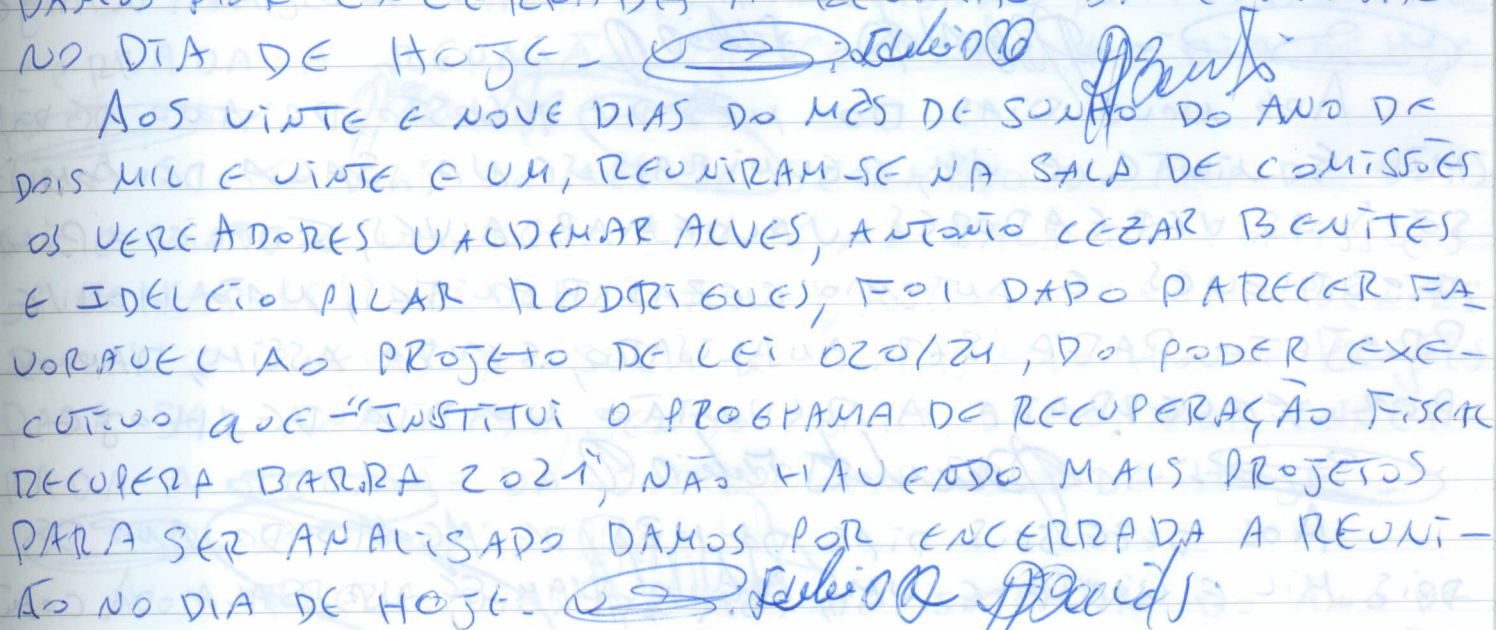 DAMOS POR ENCERRADA A
NO DIA DE HOJE-
AOS VINTE E NOVE DIAS DO MÊS DE JUNHO DO ANO DE
DOIS MIL E VINTE E UM, REUNIRAM-SE NA SALA DE COMISSÕES
OS VEREADORES VALDEMAR ALVES, ANTONIO CEZAR BENITES
E IDELCIO PILAR RODRIGUES, FOI DADO PARECER FA-
VORÁVEL AO PROJETO DE LEI 020/21, DO PODER EXE-
CUTIVO QUE -"INSTITUI O PROGRAMA DE RECUPERAÇÃO FISCAL
RECUPERA BARRA 2021", NÃO HAVENDO MAIS PROJETOS
PARA SER ANALISADO DAMOS POR ENCERRADA A REUNI-
ÃO NO DIA DE HOJE-